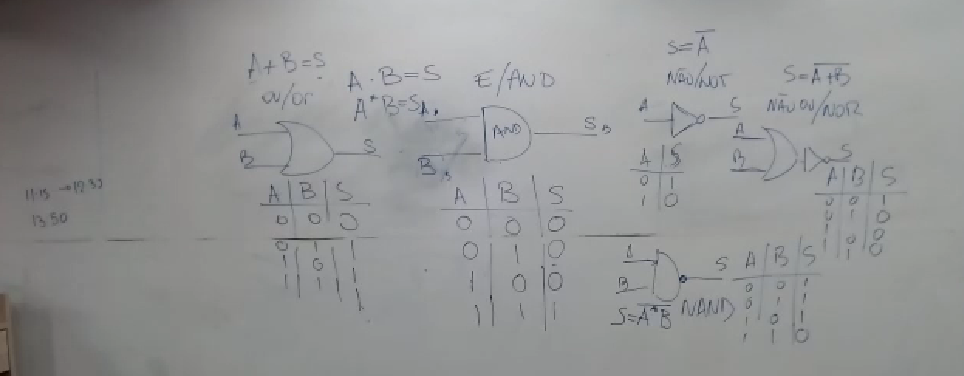 A+B=S
OU/or
A
B
S
A B S
0 0 0
0 1 1
1 0 1
1 1 1
A . B=S
A*B=S
E/AND
A
B
AND
S
A B S
0 0 0
0 1 0
1 0 0
1 1 1
S=A̅
NÃO/NOT
A
S
A S
0 1
1 0
S=A̅+̅B̅
NÃO OU/NOR
A
B
S
A B S
0 0 1
0 1 0
1 0 0
1 1 0
A
B
S
S=A̅*̅B̅
NAND
A B S
0 0 1
0 1 1
1 0 1
1 1 0
13:50